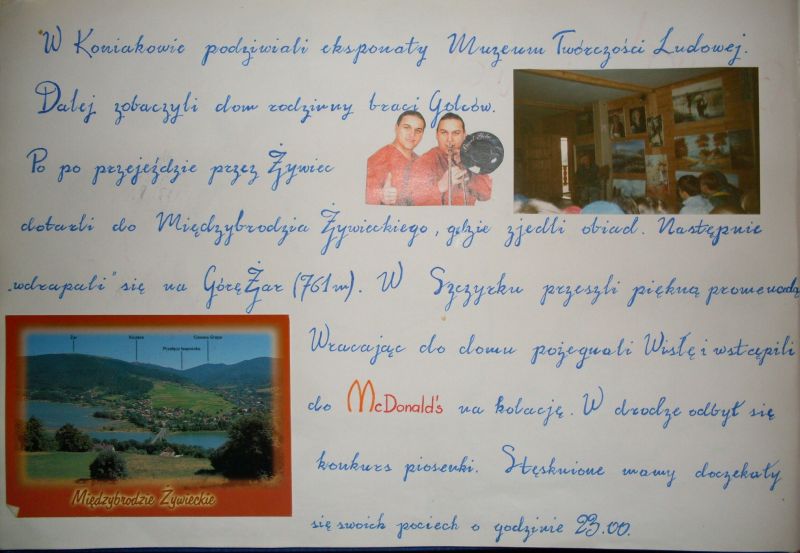 W Koniakowie podziwiali eksponaty Muzeum Twórczości Ludowej.
Dalej zobaczyli dom rodzinny braci Golców.
Po po przejeździe przez Żywiec
dotarli do Międzybrodzia Żywieckiego, gdzie zjedli obiad. Następnie
„wdrapali” się na Górę Żar (761 m). W Szczyrku przeszli piękną promenadą
Wracając do domu pożegnali Wisłę i wstąpili
do McDonald's na kolację. W drodze odbył się
konkurs piosenki. Stęsknione mamy doczekały
się swoich pociech o godzinie 23.00.
Żar
Międzybrodzie Żywieckie